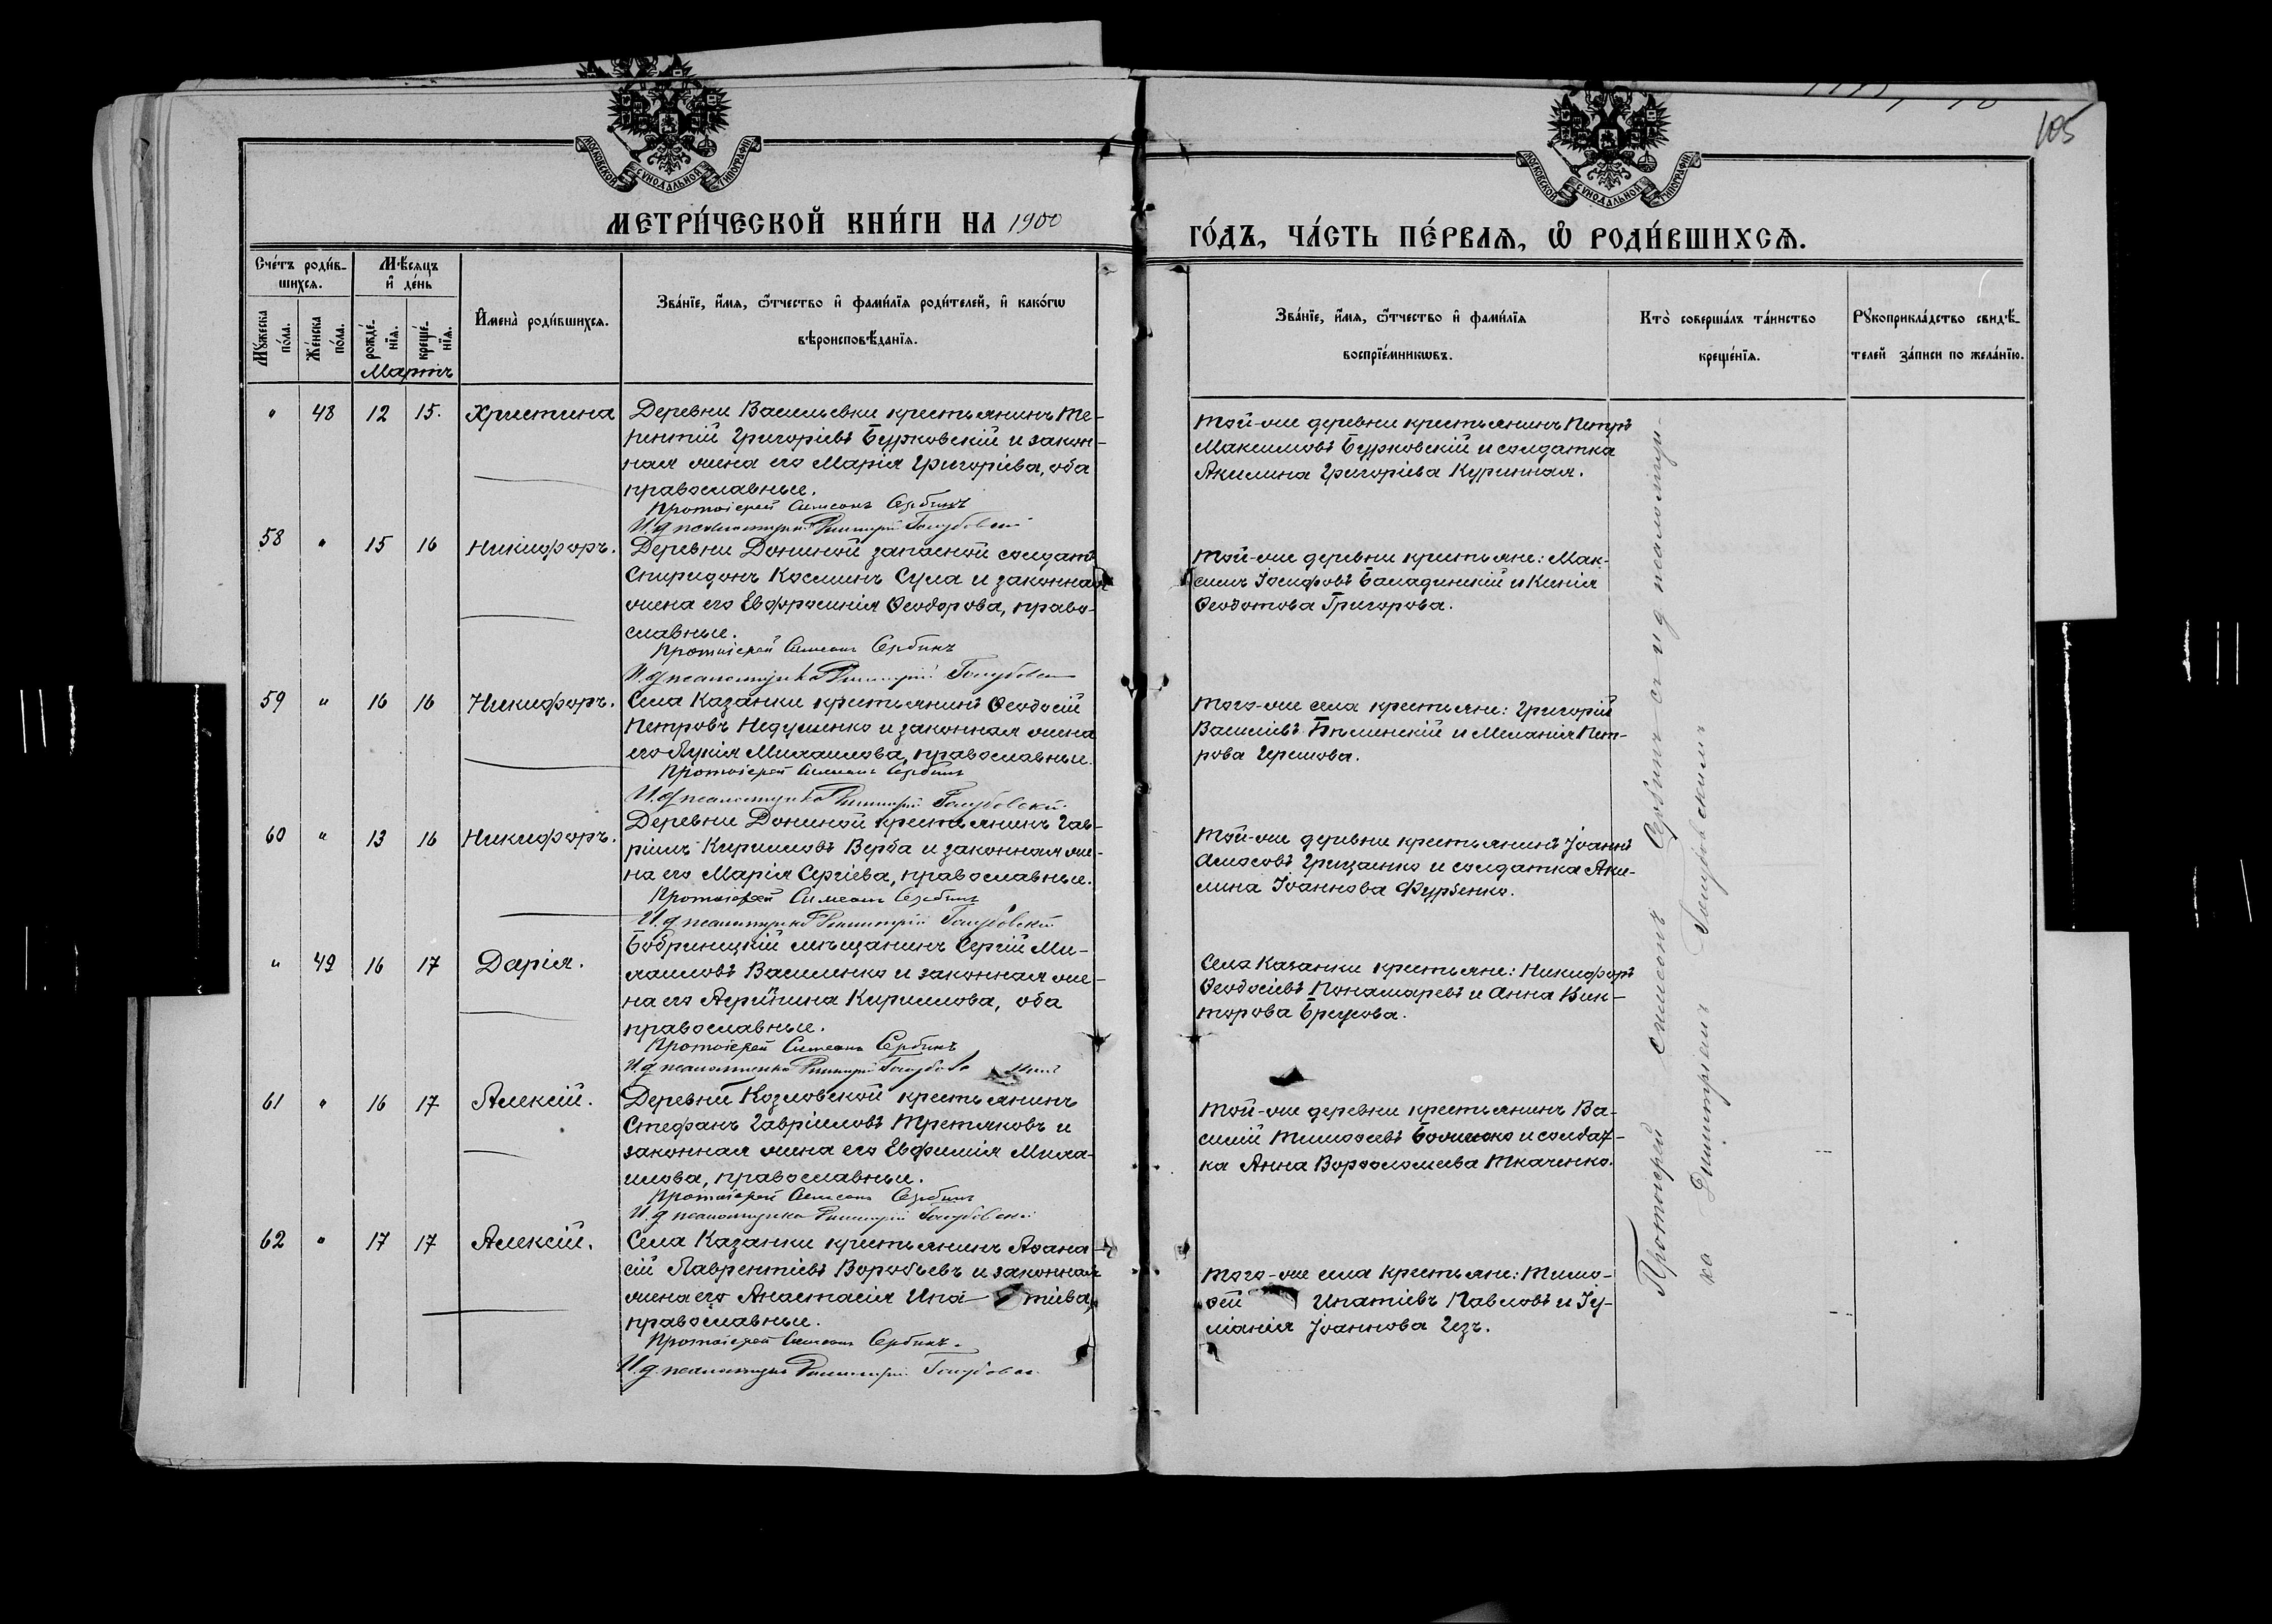 105
МОСКОВСКОЙ СѴНОДАЛЬНОЙ ТИПОГРАФІИ
МОСКОВСКОЙ СѴНОДАЛЬНОЙ ТИПОГРАФІИ
МЕТРИ́ЧЕСКОЙ КНИ́ГИ НА 1900
ГО́ДЪ, ЧА́СТЬ ПЕ́РВАѦ, Ѡ҆ РОДИ́ВШИХСѦ.
Сче́тъ роди́в-
шихсѧ.
Мꙋ́жеска
по́ла.
Же́нска
по́ла.
Мѣ́сѧцъ
и҆ де́нь
рожде́-
нїѧ.
креще́-
нїѧ.
Мартъ
И҆мена̀ роди́вшихсѧ.
Зва́нїе, и҆́мѧ, ѻ҆́тчество и҆ фами́лїѧ роди́телей, и҆ како́гѡ
вѣроисповѣ́данїѧ.
Зва́нїе, и҆́мѧ, ѻ҆́тчество и҆ фами́лїѧ
воспрїе́мникѡвъ.
Кто̀ соверша́лъ та́инство
креще́нїѧ.
Рꙋкоприкла́дство свидѣ́-
телей за́писи по жела́нїю.
" 48 12 15. Христина
Деревни Васильевки крестьянинъ Те-
рентій Григоріевъ Бурковскій и закон-
ная жена его Марія Григоріева, оба
православные.
Протоіерей Симеонъ Сербинъ
И. д. псаломщика Димитрій Голубовскій
Той-же деревни крестьянинъ Петръ
Максимовъ Бурковскій и солдатка
Акилина Григоріева Куринная.
58 " 15 16 Никифоръ.
Деревни Дониной запасной солдатъ
Спиридонъ Косминъ Сула и законная
жена его Евфросинія Ѳеодорова, право-
славные.
Протоіерей Симеонъ Сербинъ
И. д. псаломщика Димитрій Голубовскій
Той-же деревни крестьяне: Мак-
симъ Іосифовъ Баладинскій и Ксенія
Ѳеодотова Григорова.
59 " 16 16 Никифоръ.
Села Казанки крестьянинъ Ѳеодосій
Петровъ Недуженко и законная жена
его Лукія Михаилова, православные.
Протоіерей Симеонъ Сербинъ
И. д. псаломщика Димитрій Голубовскій
Того-же села крестьяне: Григорій
Василіевъ Бѣлинскій и Меланія Пет-
рова
60 " 13 16 Никифоръ.
Деревни Дониной крестьянинъ Гав-
ріилъ Кирилловъ Верба и законная же-
на его Марія Сергіева, православные.
Протоіерей Симеонъ Сербинъ
И. д. псаломщика Димитрій Голубовскій
Той-же деревни крестьянинъ Іоаннъ
Амосовъ Грицаенко и солдатка Аки-
лина Іоаннова Фурзенко.
" 49 16 17 Дарія.
Бобринецкій мѣщанинъ Сергій Ми-
хаиловъ Василенко и законная же-
на его Агрипина Кириллова, оба
православные.
Протоіерей Симеонъ Сербинъ
И. д. псаломщика Димитрій Голубовскій
Села Казанки крестьяне: Никифоръ
Ѳеодосіевъ Понамаревъ и Анна Вик-
торова Брусова.
61 " 16 17 Алексій.
Деревни Козловской крестьянинъ
Стефанъ Гавріиловъ Третьяковъ и
законная жена его Евфимія Миха-
илова, православные.
Протоіерей Симеонъ Сербинъ
И. д. псаломщика Димитрій Голубовскій
Той-же деревни крестьянинъ Ва-
силій Тимоѳеевъ и солдат-
ка Анна Варѳоломеева Ткаченко.
62 " 17 17 Алексій.
Села Казанки крестьянинъ Аѳана-
сій Лаврентіевъ Воробьевъ и законная
жена его Анастасія Ипатіева,
православные.
Протоіерей Симеонъ Сербинъ.
И. д. псаломщика Димитрій Голубовскій
Того-же села крестьяне: Тимо-
ѳей Ипатіевъ Павловъ и Іу-
ліанія Іоаннова Гезъ.
Протоіерей Симеонъ Сербинъ съ и д псаломщи-
ка Димитріемъ Голубовскимъ